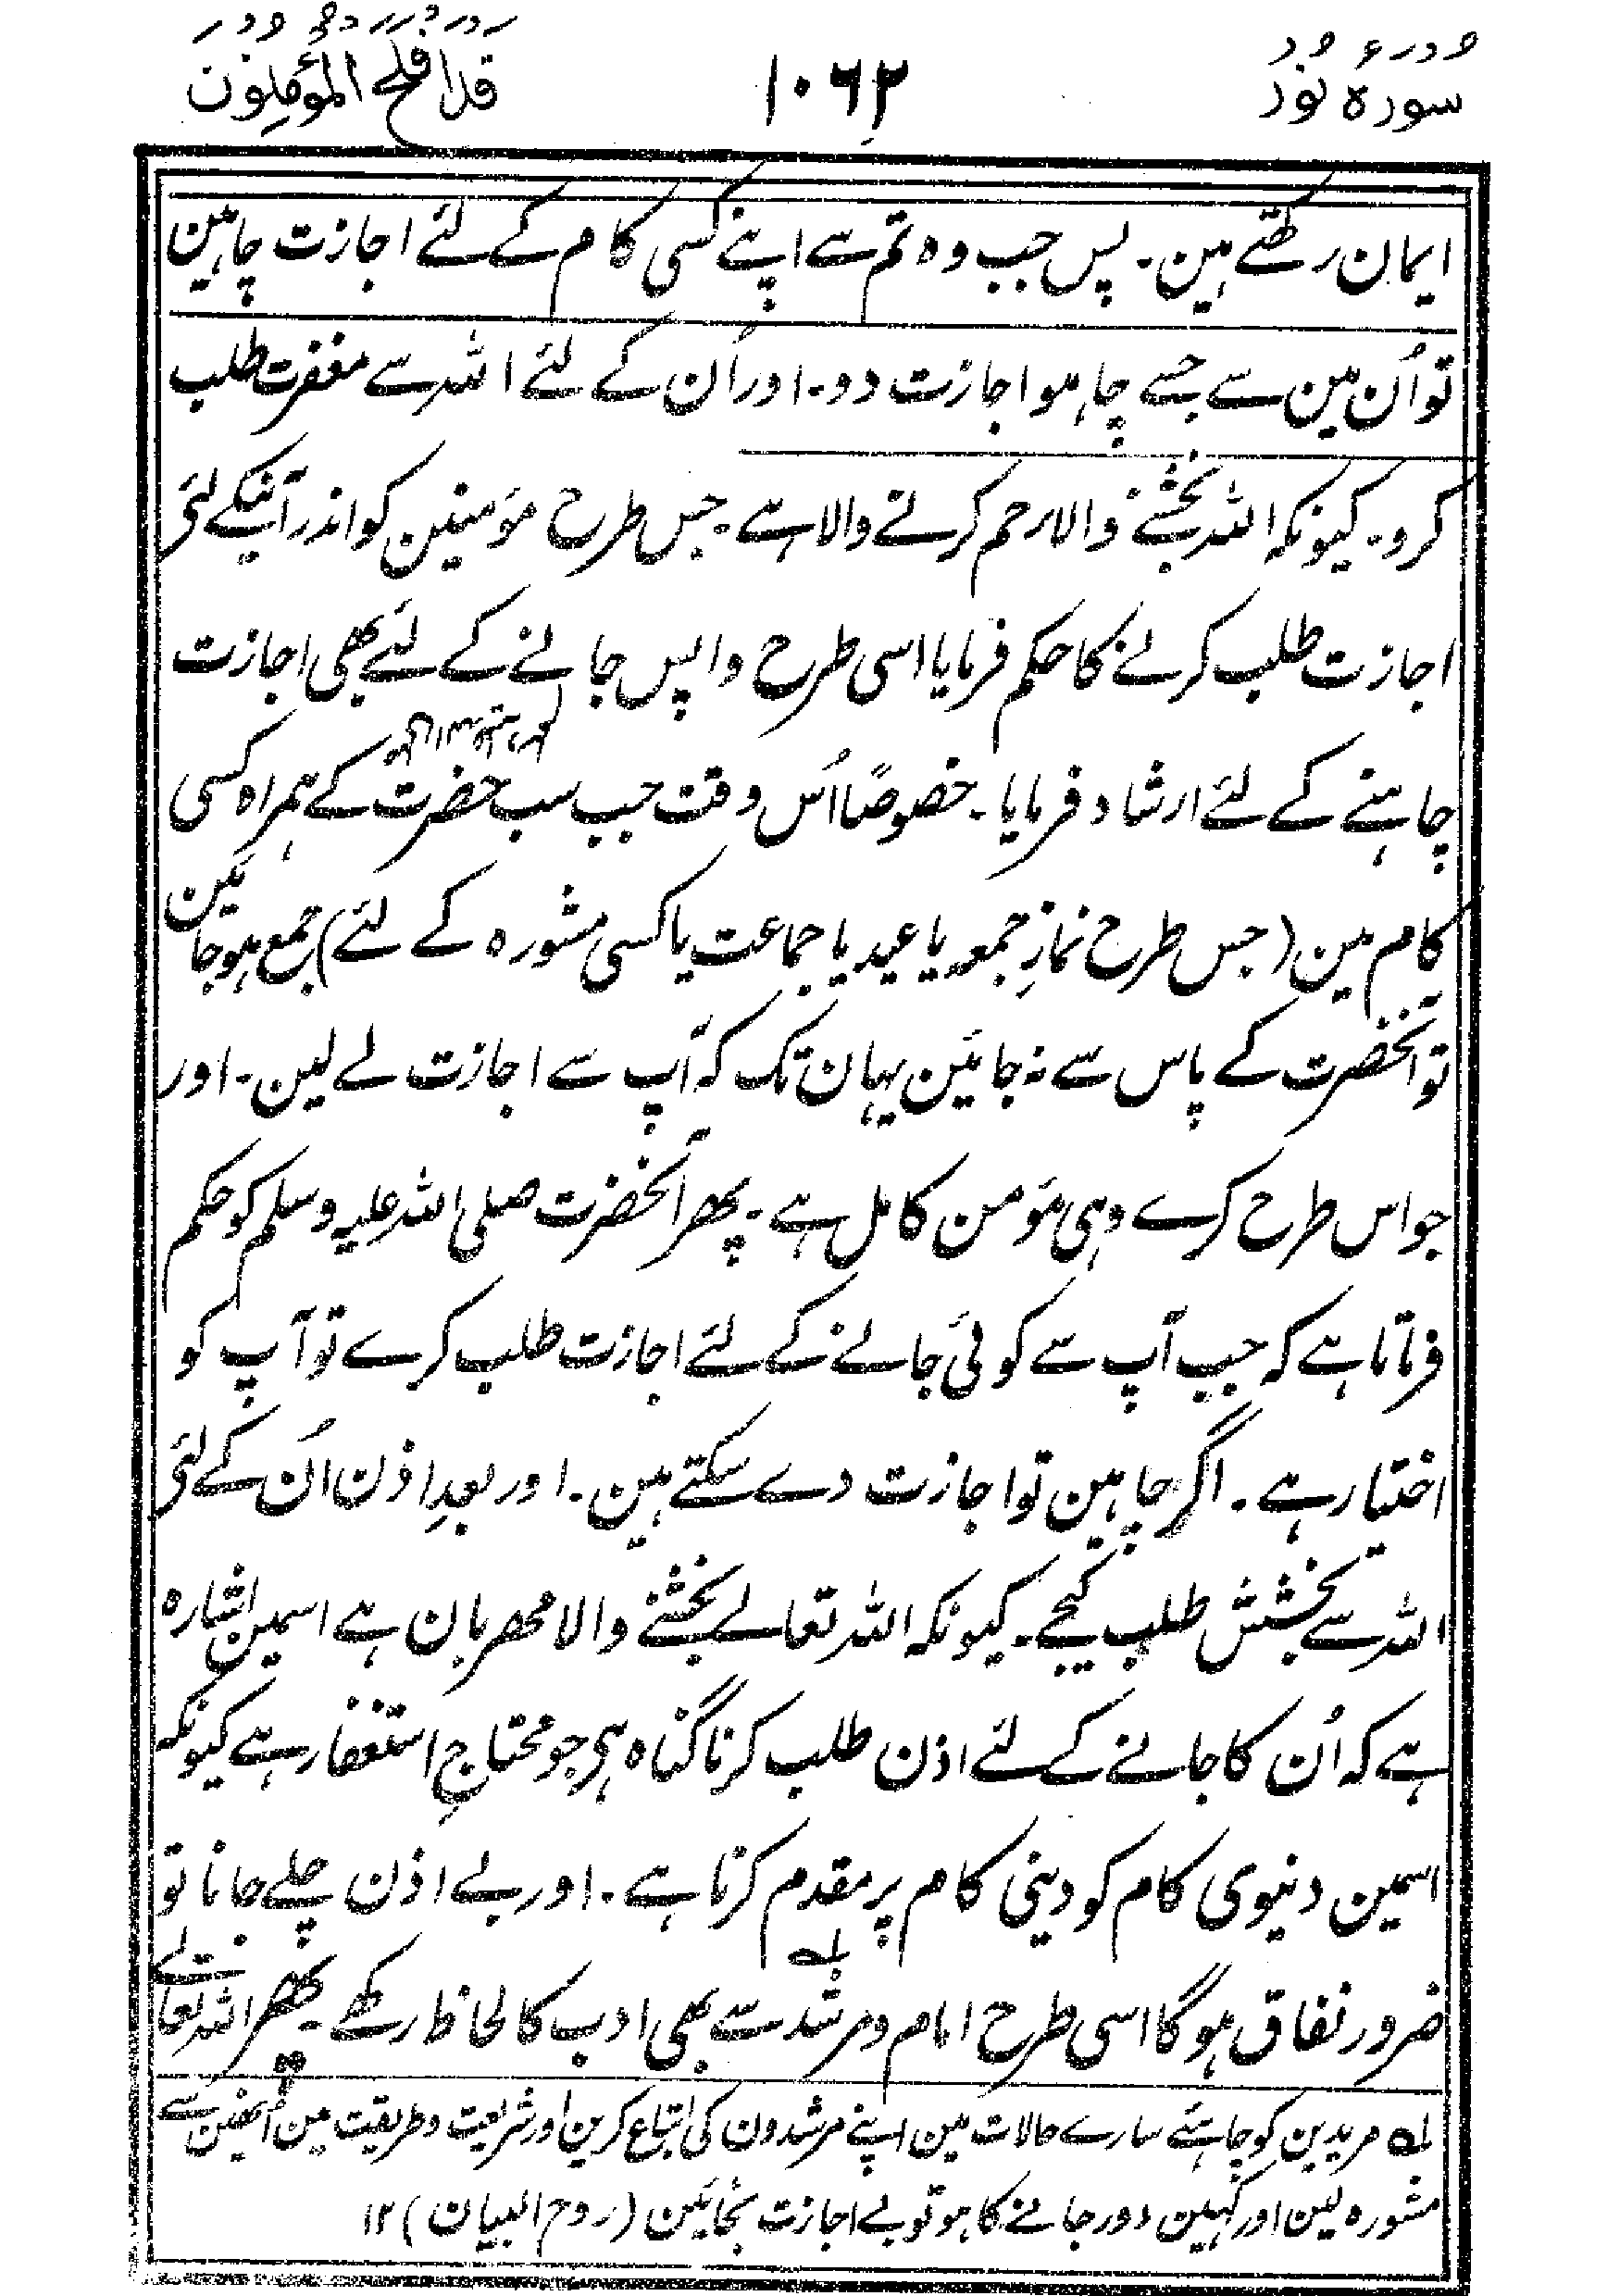 سورۂ نور ۱۰۶۲ قد افلح المؤمنون
ایمان رکھتے ہین۔ پس جب وہ تم سے اپنے کسی کام کے لئے اجازت چاہین
تو اُن مین سے جسے چاہو اجازت دو۔ اور اُن کے لئے اللہ سے مغفرت طلب
کرو۔ کیونکہ اللہ بخشنے والا رحم کرنے والا ہے۔ جس طرح مؤمنین کو اندر آنیکے لئی
اجازت طلب کرنے کا حکم فرمایا اسی طرح واپس جانے کے لئے بھی اجازت
چاہنے کے لئے ارشاد فرمایا۔ خصوصًا اُس وقت جب سب حضرت کے ہمراہ کسی
کام مین (جس طرح نمازِ جمعہ یا عید یا جماعت یا کسی مشورہ کے لئے) جمع ہوجائین
تو آنحضرت کے پاس سے نہ جائین یہان تک کہ آپ سے اجازت لے لین۔ اور
جو اس طرح کرے وہی مؤمن کامل ہے۔ پھر آنحضرت صلی اللہ علیہ وسلم کو حکم
فرماتا ہے کہ جب آپ سے کوئی جانے کے لئے اجازت طلب کرے تو آپ کو
اختیار ہے۔ اگر چاہین تو اجازت دے سکتے ہین۔ اور بعدِ اذن اُن کے لئی
اللہ سے بخشش طلب کیجے۔ کیونکہ اللہ تعالے بخشنے والا مھربان ہے اسمین اشارہ
ہے کہ اُن کا جانے کے لئے اذن طلب کرنا گناہ ہی جو محتاجِ استغفار ہے کیونکہ
اسمین دنیوی کام کو دینی کام پر مقدم کرنا ہے۔ اور بے اذن چلے جانا تو
ضرور نفاق ہوگا اسی طرح امام و مرشد سے بھی ادب کا لحاظ رکھے۔ پھر اللہ تعالے
لہ مریدین کو چاہئے سارے حالات مین اپنے مرشدون کی اتباع کرین اور شریعت و طریقت مین اُنھین سے
مشورہ لین اور کہین دور جانے کا ہو تو بے اجازت نجائین (روح البیان) ۱۲